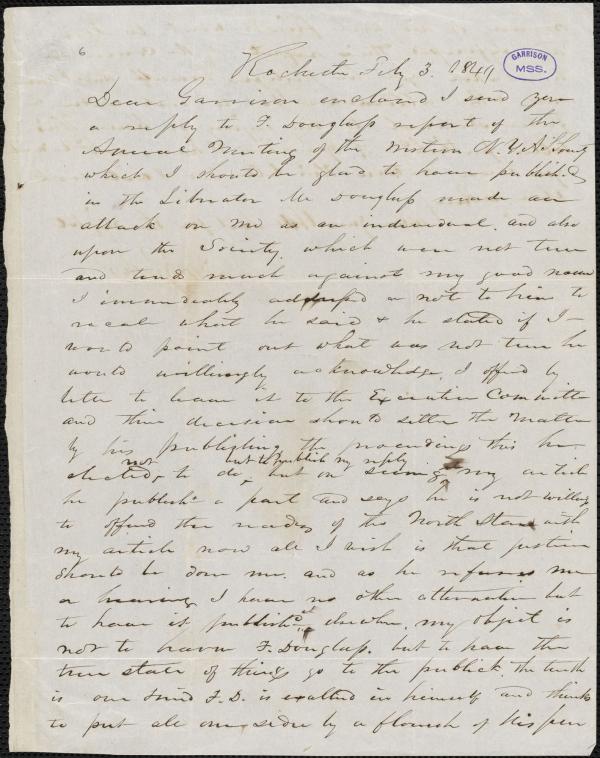 6
GARRISON
MSS.
Rochester Feby 3. 1849
Dear Garrison enclosed I send you
a reply to F. Douglass report of the
Annual Meeting of the Western N.Y. A S Society
which I should be glad to have published
in the Liberator Mr Douglass made an
attack on me as an individual. and also
upon the Society. which were not true
and tends much against my good name
I immediately addressed a note to him to
recall what he said & he stated if I
would point out what was not true he
would willingly acknowledge. I offered by
letter to leave it to the Executive Committee
and their decision should settle the matter
by his publishing the proceedings this he
not not to publish my reply
elected, to do, but on seeing my article
he publishd a part and says he is not willing
to offend the readers of the North Star with
my article now all I wish is that justice
should be done me. and as he refuses me
a hearing I have no other alternative but
to have it publishd elsewhere. my object is
not to harm F. Douglass. but to have the
true state of things go to the publick. the truth
is our friend F.D. is exalted in himself and thinks
to put all one side by a flourish of his pen